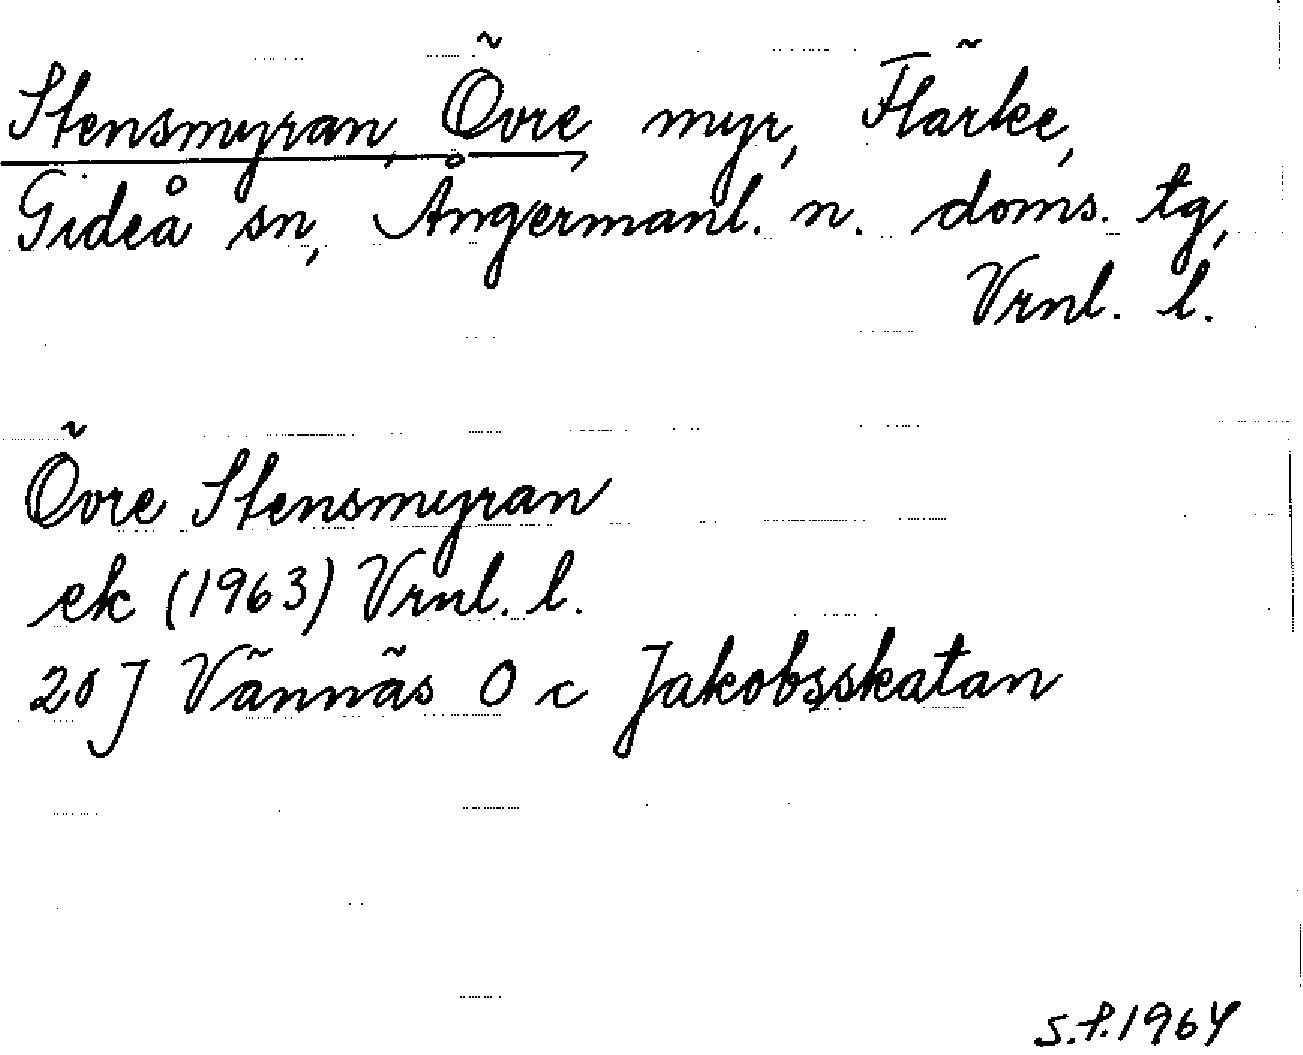 Stensmyran, Övre myr, Flärke,
Gideå sn, Ångermanl. n. doms. tg,
Vrnl. l.
Övre Stensmyran
ek (1963) Vrnl. l.
20 J Vännäs O c Jakobsskatan
S.P.1964